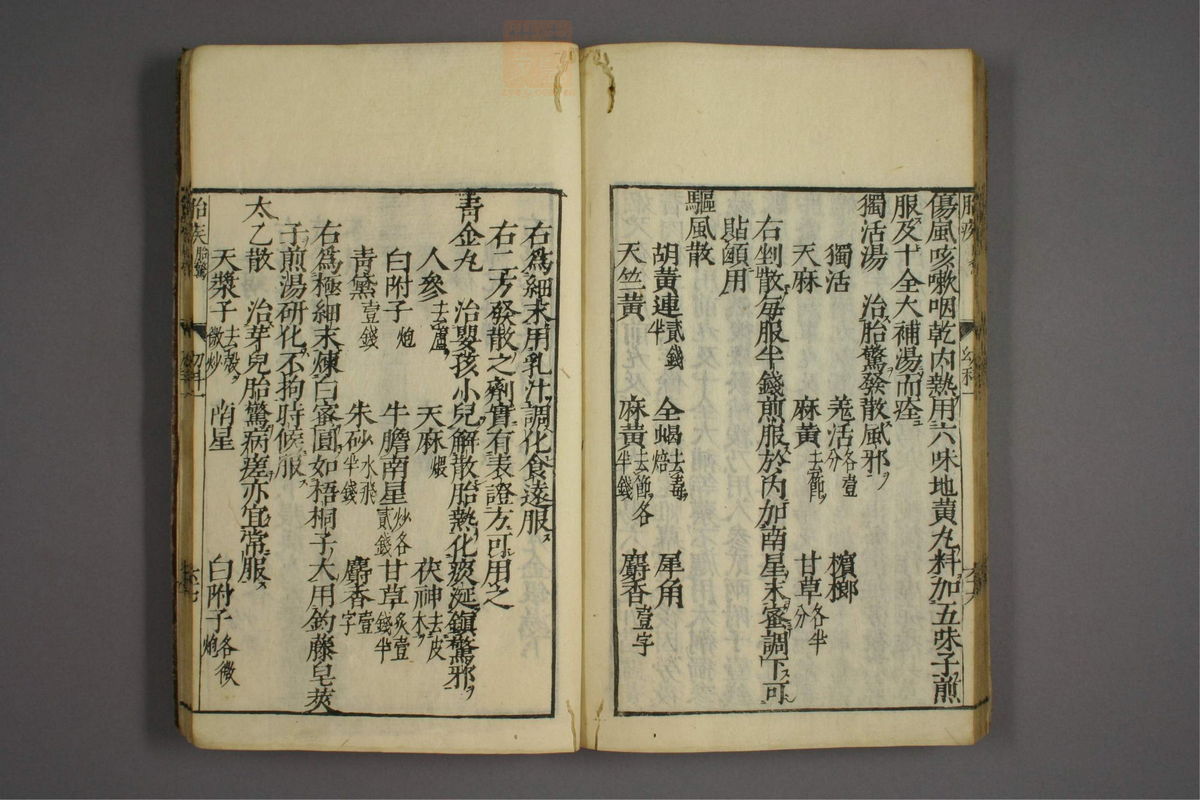 傷風咳嗽咽乾内熱用六味地黄丸料加五味子煎
服及十全大補湯而痊
獨活湯　治胎驚發散風邪
獨活　羗活各壹分　檳榔
天麻　麻黄去節　甘草各半分
右剉散每服半錢煎服於内加南星末蜜調下可
貼顖用
驅風散
胡黄連貳錢半　全蝎去毒焙　犀角
天竺黄　麻黄去節各半錢　麝香壹字
右爲細末用乳汁調化食遠服
右二方發散之劑實有表證方可用之
青金丸　治嬰孩小兒解散胎熱化痰涎鎮驚邪
人參去蘆　天麻煨　茯神去皮木
白附子炮　牛膽南星炒各貳錢　甘草炙壹錢半
青黛壹錢　朱砂水飛半錢　麝香壹字
右爲極細末煉白蜜圓如梧桐子大用釣藤皂莢
子煎湯研化不拘時候服
太乙散　治芽兒胎驚病瘥亦宜常服
天漿子去殼微炒　南星　白附子各微炮
胎疾　胎驚　幼科一